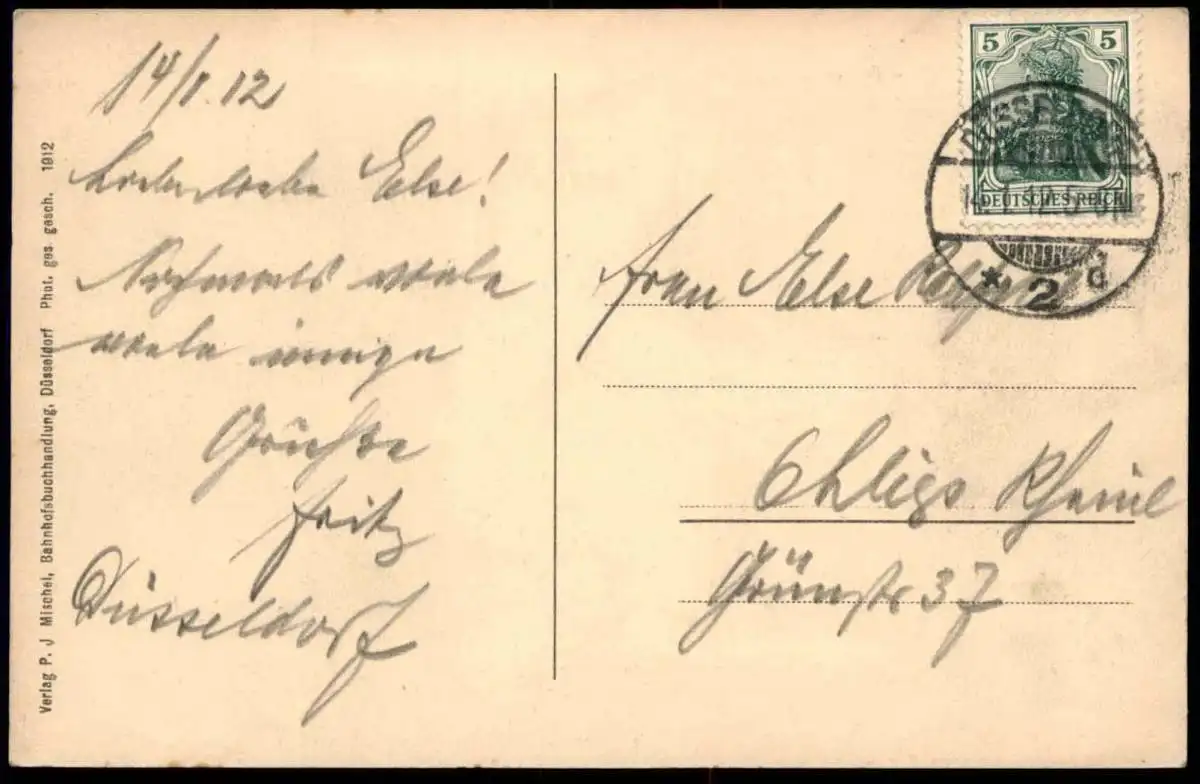 14/1.12
Liebe liebe Else!
Nochmals viele
viele innige
Grüße
Fritz
Düsseldorf
Verlag P. J Mischel, Bahnhofsbuchhandlung, Düsseldorf Phot. ges gesch. 1912
5 5
DEUTSCHES REICH
DÜSSELDORF
* 2 d
Frau Else
Ohligs Rheinl
Grünstr 37